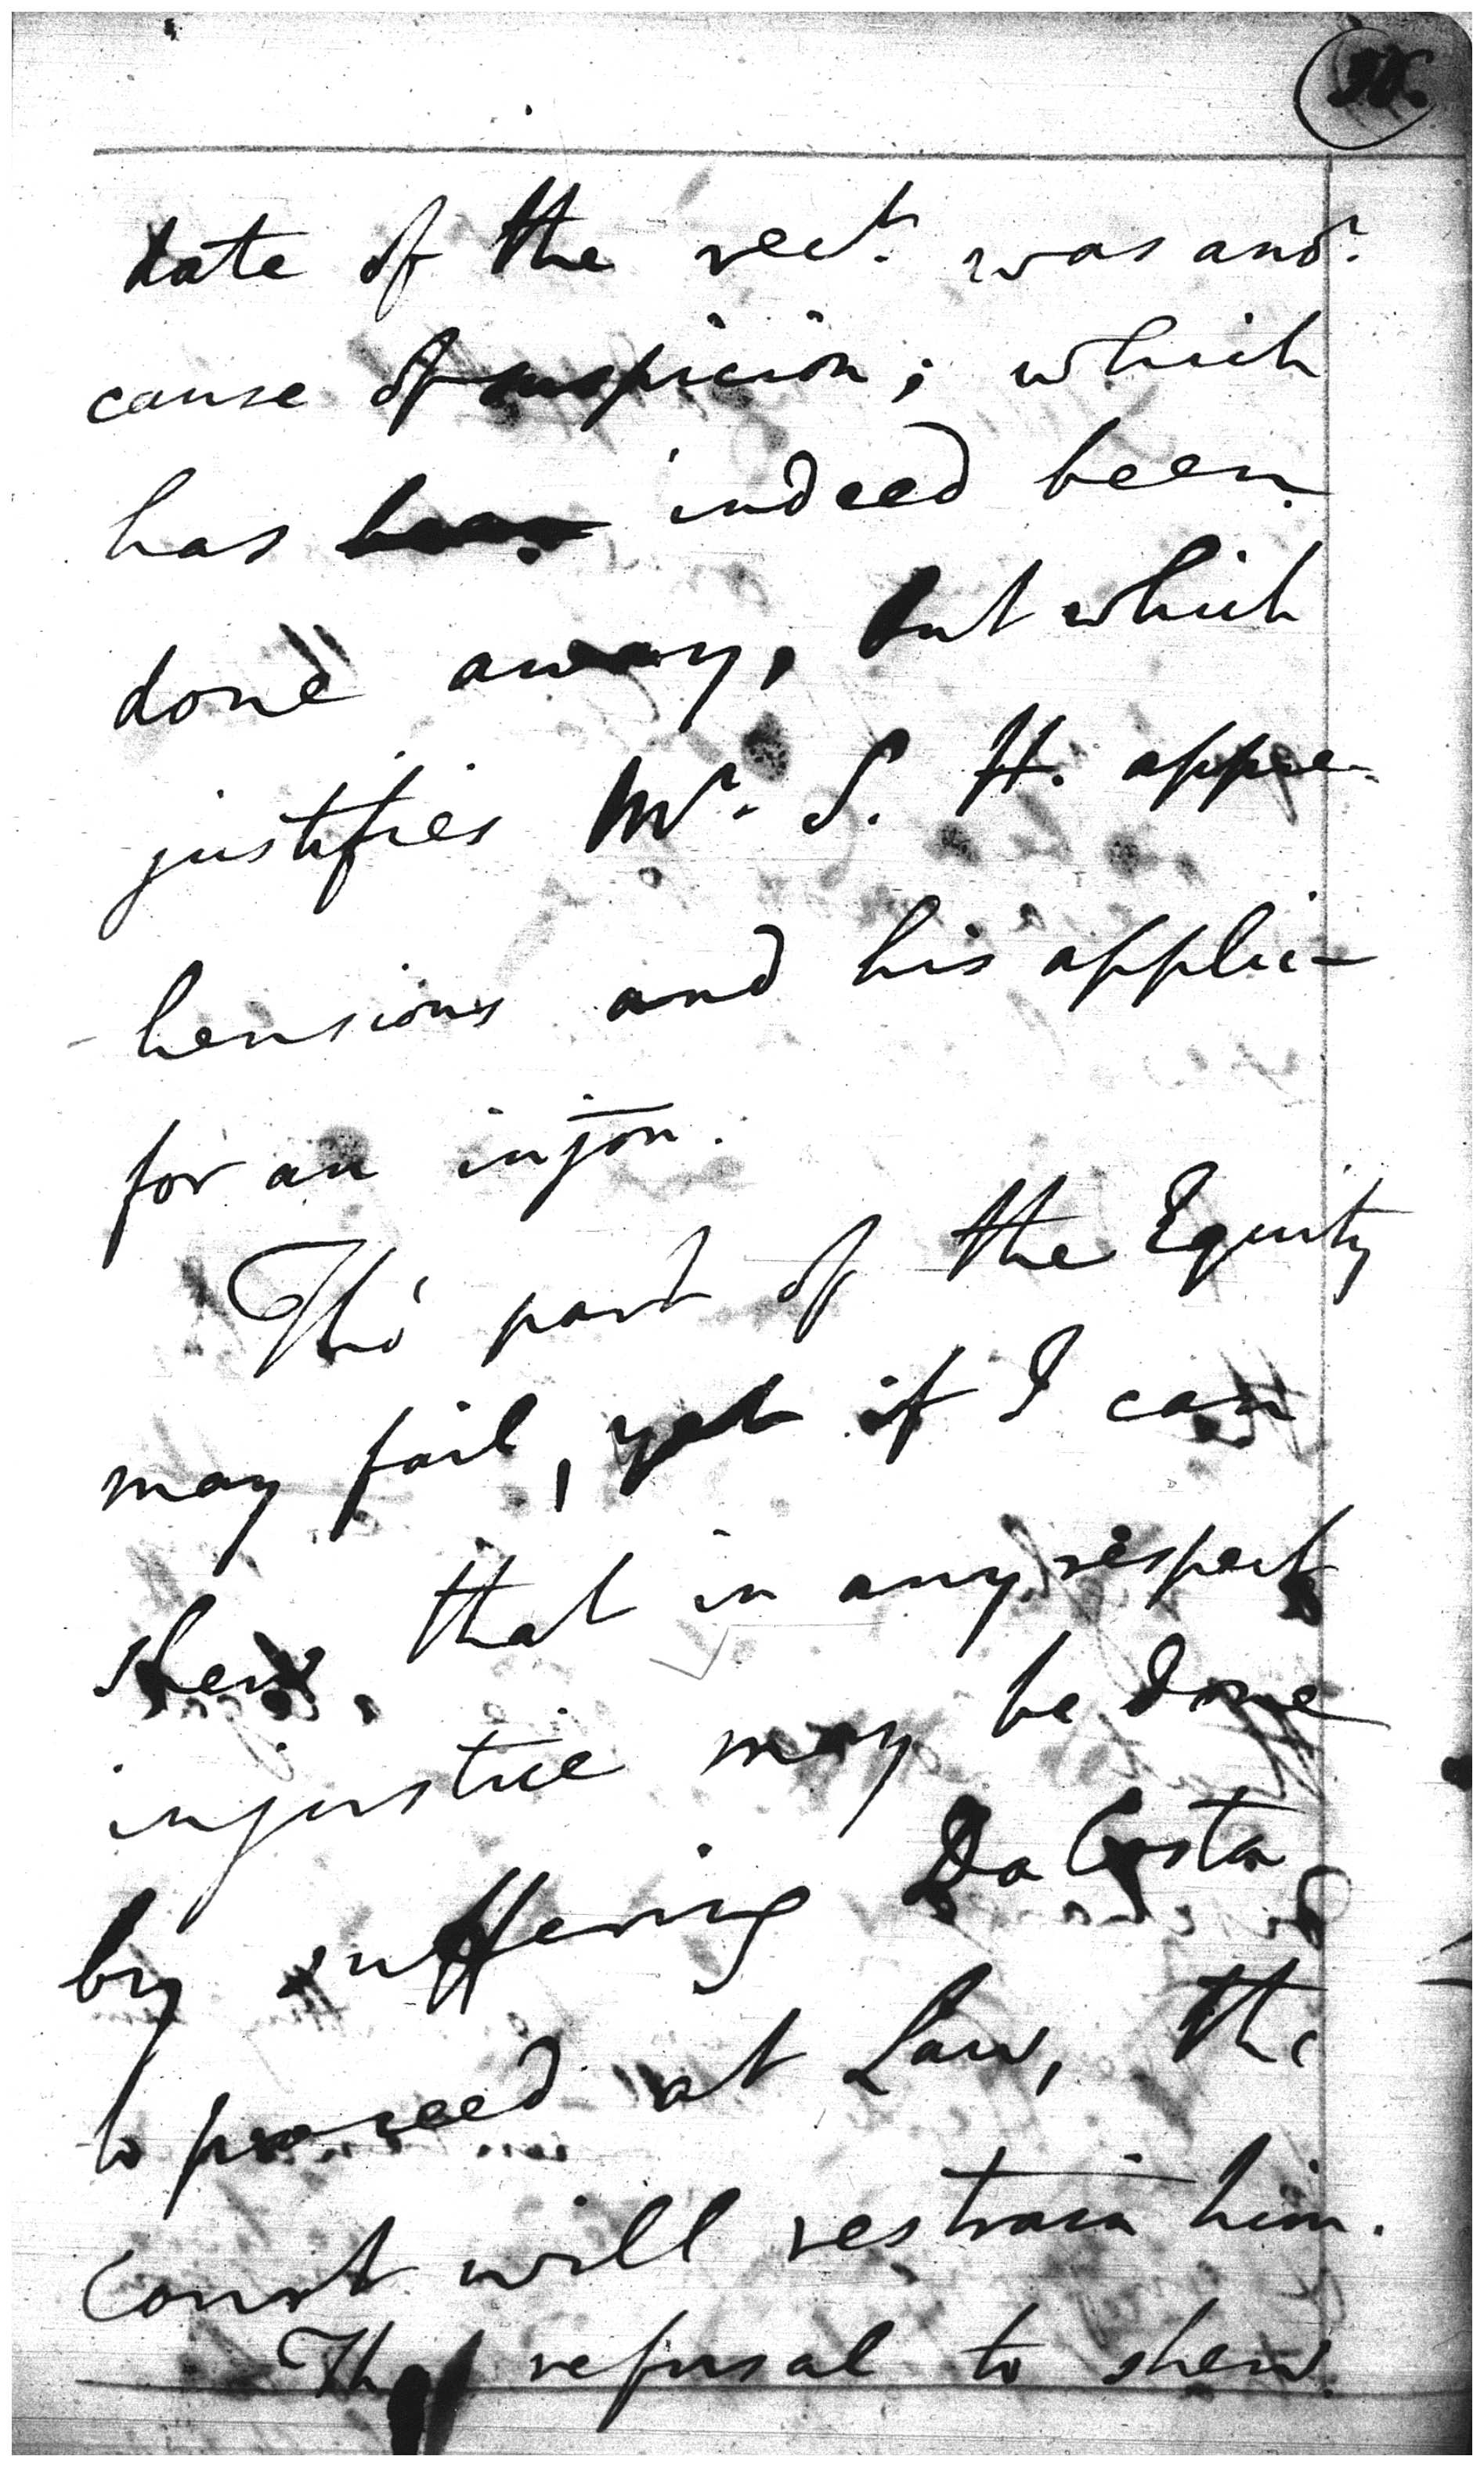 date of the rect. was anor.
cause of suspicion; which
has been indeed been
done away, but which
justifies Mr. S. H. appre-
-hensions and his applic-
for an injōn.
Tho' part of the Equity
may fail, yet if I can
shew, that in any respect
injustice may be done
by suffering Da Costa
to proceed at Law, the
Court will restrain him.
The refusal to shew